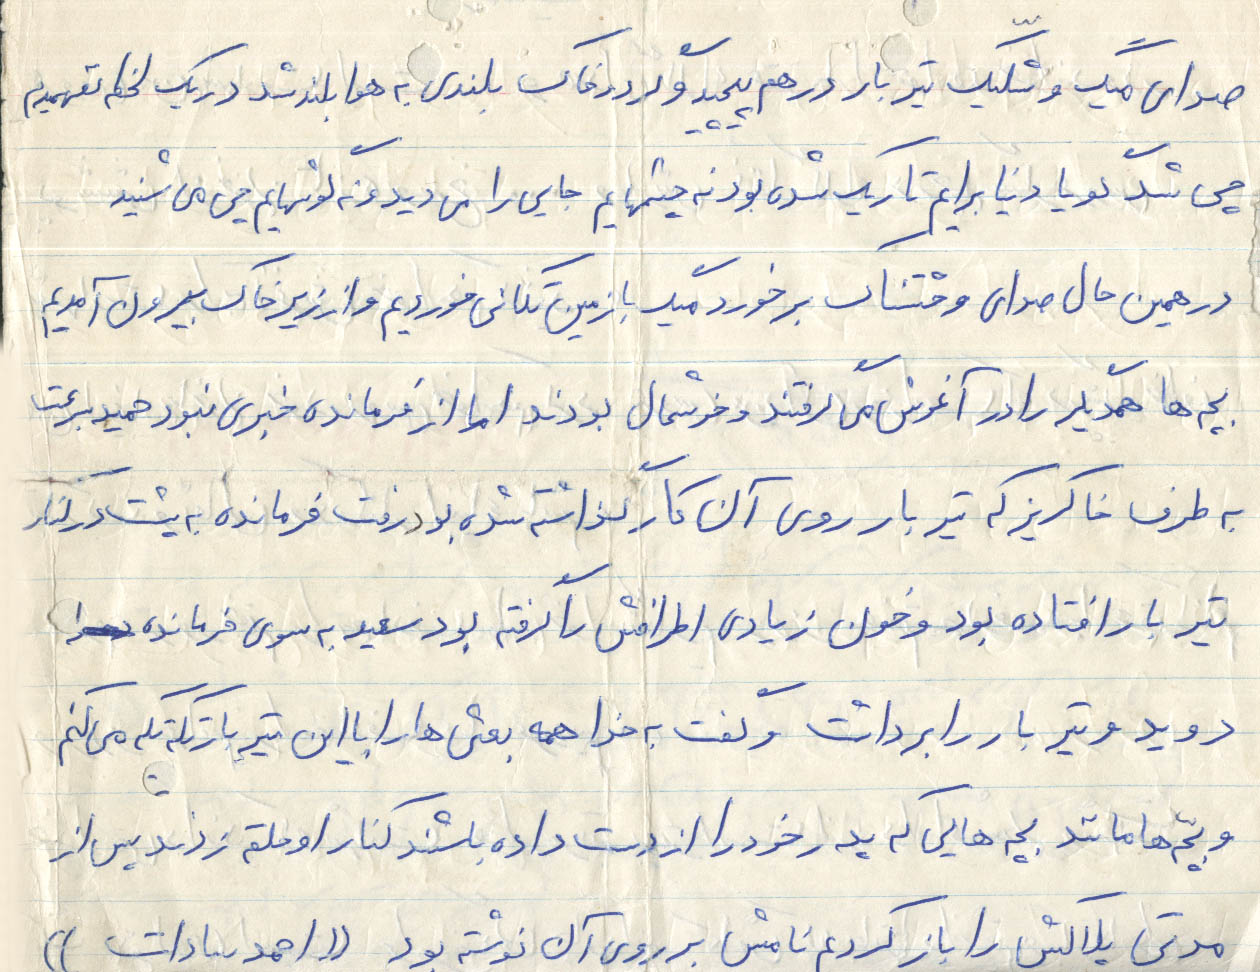 صدای میگ و شلیک تیر بار در هم پیچید و گرد و خاک بلندی به هوا بلند شد در یک لحظه نفهمیدم
چی شد گویا دنیا برایم تاریک شده بود نه چشمهایم جایی را می دید و نه گوشهایم چی می شنید
در همین حال صدای وحشتناک برخورد میگ با زمین تکانی خوردیم و از زیر خاک بیرون آمدیم
بچه ها همدیگر را در آغوش می گرفتند و خوشحال بودند اما از فرمانده خبری نبود حمید بسرعت
به طرف خاکریز که تیر بار روی آن کار گذاشته شده بود رفت فرمانده به پشت در کنار
تیر بار افتاده بود و خون زیادی اطرافش را گرفته بود سعید به سوی فرمانده
دوید و تیر بار را برداشت و گفت به خدا همه بعثی ها را با این تیر بار تکه تکه می کنم
و بچّه ها مانند بچه هایی که پدر خود را از دست داده باشند کنار او حلقه زدند پس از
مدتی پلاکش را باز کردم نامش بر روی آن نوشته بود (( احمد سادات ))